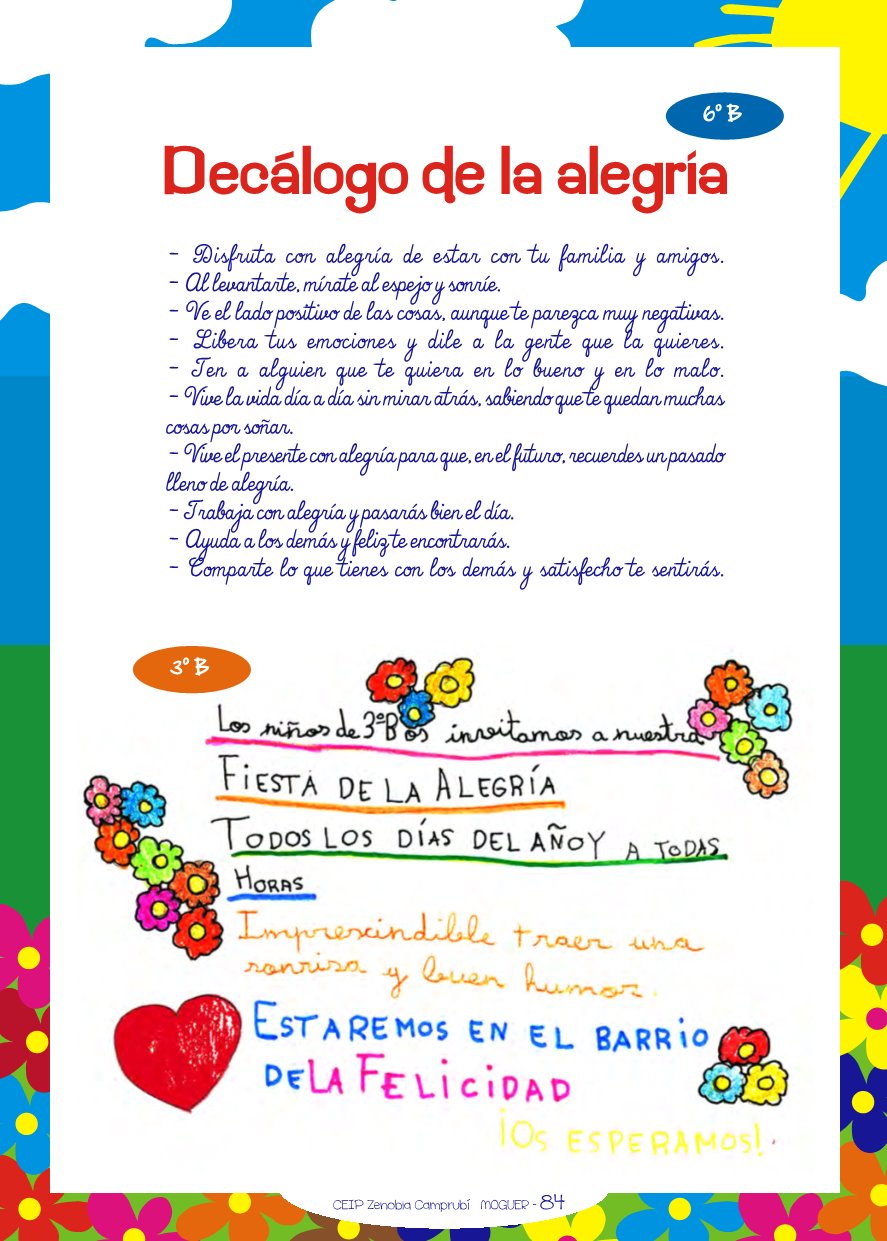 6º B
Decálogo de la alegría
- Disfruta con alegría de estar con tu familia y amigos.
- Al levantarte, mírate al espejo y sonríe.
- Ve el lado positivo de las cosas, aunque te parezca muy negativas.
- Libera tus emociones y dile a la gente que la quieres.
- Ten a alguien que te quiera en lo bueno y en lo malo.
- Vive la vida día a día sin mirar atrás, sabiendo que te quedan muchas
cosas por soñar.
- Vive el presente con alegría para que, en el futuro, recuerdes un pasado
lleno de alegría.
- Trabaja con alegría y pasarás bien el día.
- Ayuda a los demás y feliz te encontrarás.
- Comparte lo que tienes con los demás y satisfecho te sentirás.
3º B
Los niños de 3ºB os invitamos a nuestra
FIESTA DE LA ALEGRÍA
TODOS LOS DÍAS DEL AÑO Y A TODAS
HORAS
Imprescindible traer una
sonrisa y buen humor.
ESTAREMOS EN EL BARRIO
DE LA FELICIDAD
¡OS ESPERAMOS!
CEIP Zenobia Camprubí MOGUER - 84